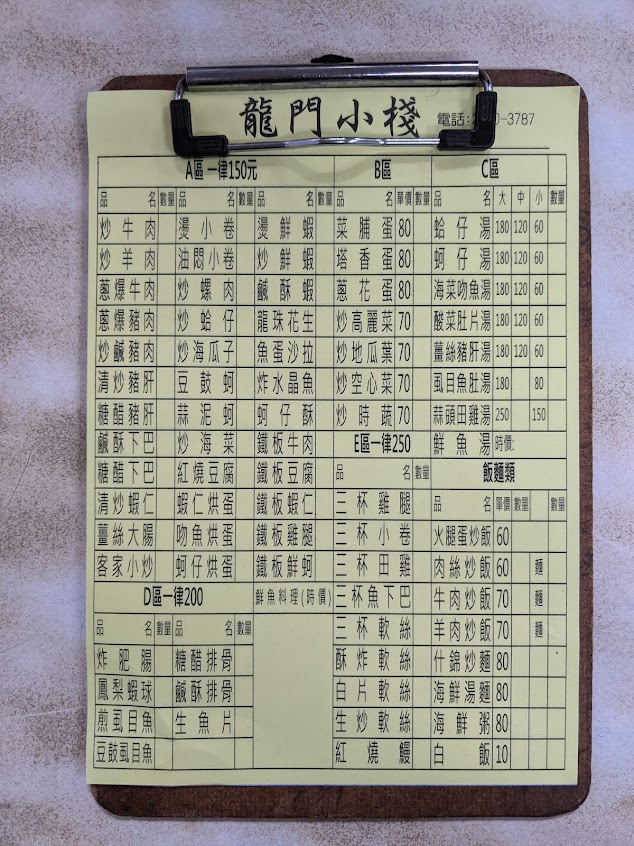 龍門小棧
電話: 0-3787
A區一律150元 B區 C區
品名 數量 品名 數量 品名 數量 品名 單價 數量 品名 大 中 小 數量
炒牛肉 燙小卷 燙鮮蝦 菜脯蛋 80 蛤仔湯 180 120 60
炒羊肉 油悶小卷 炒鮮蝦 塔香蛋 80 蚵仔湯 180 120 60
蔥爆牛肉 炒螺肉 鹹酥蝦 蔥花蛋 80 海菜吻魚湯 180 120 60
蔥爆豬肉 炒蛤仔 龍珠花生 炒高麗菜 70 酸菜肚片湯 180 120 60
炒鹹豬肉 炒海瓜子 魚蛋沙拉 炒地瓜葉 70 薑絲豬肝湯 180 120 60
清炒豬肝 豆鼓蚵 炸水晶魚 炒空心菜 70 虱目魚肚湯 180 80
糖醋豬肝 蒜泥蚵 蚵仔酥 炒時蔬 70 蒜頭田雞湯 250 150
鹹酥下巴 炒海菜 鐵板牛肉 E區一律250 鮮魚湯 時價.
糖醋下巴 紅燒豆腐 鐵板豆腐 品名 數量 飯麵類
清炒蝦仁 蝦仁烘蛋 鐵板蝦仁 三杯雞腿 品名 單價 數量 數量
薑絲大腸 吻魚烘蛋 鐵板雞腿 三杯小卷 火腿蛋炒飯 60
客家小炒 蚵仔烘蛋 鐵板鮮蚵 三杯田雞 肉絲炒飯 60 麵
D區一律200 鮮魚料理(時價) 三杯魚下巴 牛肉炒飯 70 麵
品名 數量 品名 數量 三杯軟絲 羊肉炒飯 70 麵
炸肥腸 糖醋排骨 酥炸軟絲 什錦炒麵 80
鳳梨蝦球 鹹酥排骨 白片軟絲 海鮮湯麵 80
煎虱目魚 生魚片 生炒軟絲 海鮮粥 80
豆鼓虱目魚 紅燒鰻 白飯 10